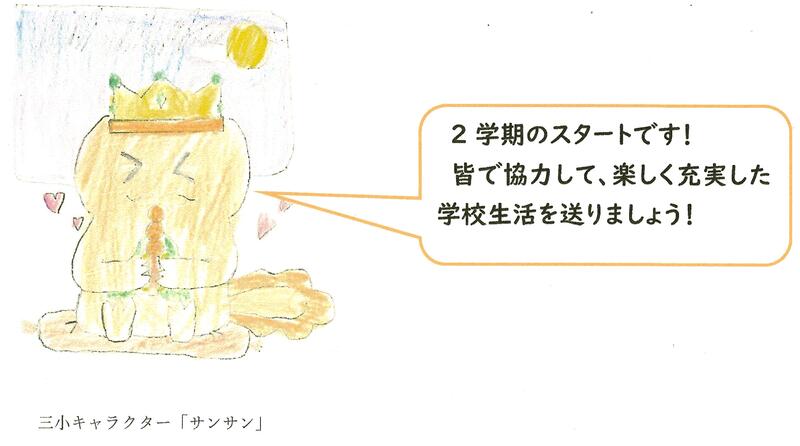 2学期のスタートです!
皆で協力して、楽しく充実した
学校生活を送りましょう!
三小キャラクター「サンサン」